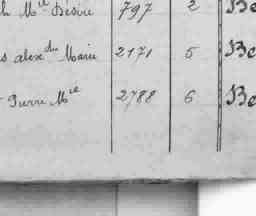 h Mie Désiré 797 2 Be
s alexdre Marie 2171 5 Be
Pierre Mie 2788 6 Be